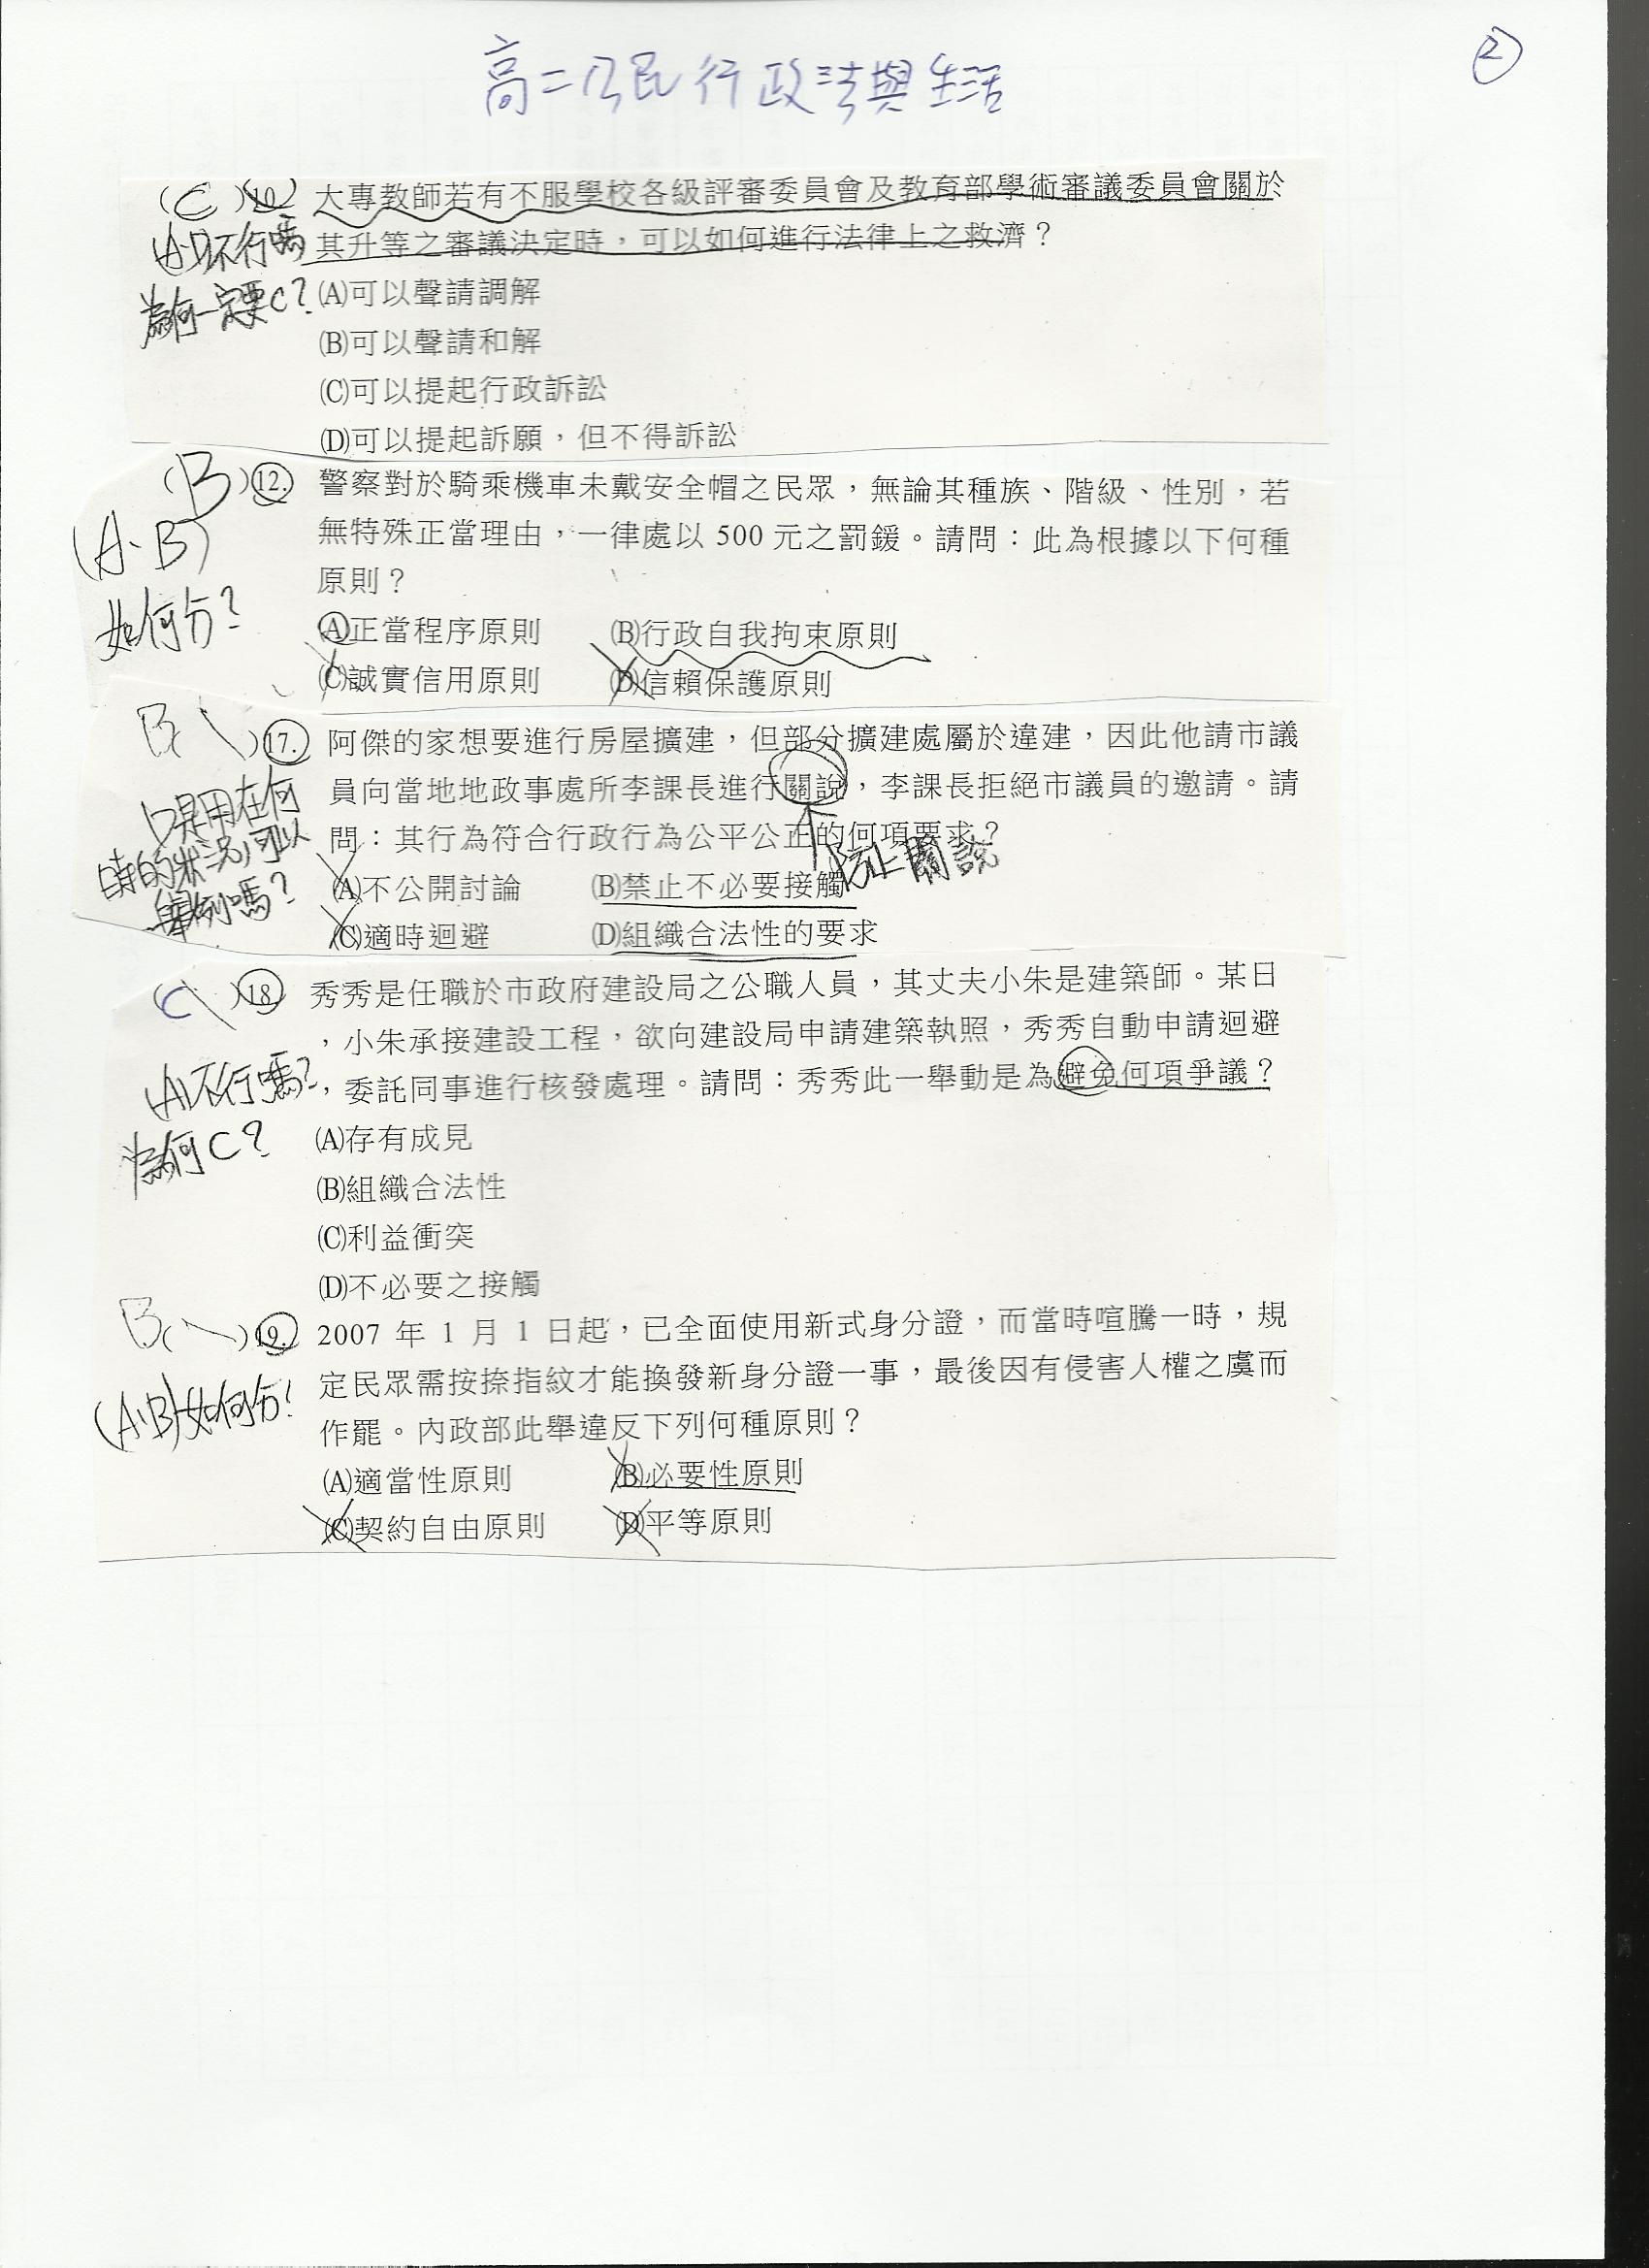 高二公民 行政法與生活
2
(C)10. 大專教師若有不服學校各級評審委員會及教育部學術審議委員會關於
其升等之審議決定時，可以如何進行法律上之救濟？
(A)可以聲請調解
(B)可以聲請和解
(C)可以提起行政訴訟
(D)可以提起訴願，但不得訴訟
(A)、D不行嗎
為何一定要C？
(B)12. 警察對於騎乘機車未戴安全帽之民眾，無論其種族、階級、性別，若
無特殊正當理由，一律處以 500 元之罰鍰。請問：此為根據以下何種
原則？
(A)正當程序原則 (B)行政自我拘束原則
(C)誠實信用原則 (D)信賴保護原則
(A、B)
如何分？
B( )17. 阿傑的家想要進行房屋擴建，但部分擴建處屬於違建，因此他請市議
員向當地地政事處所李課長進行關說，李課長拒絕市議員的邀請。請
問：其行為符合行政行為公平公正的何項要求？
防止關說
(A)不公開討論 (B)禁止不必要接觸
(C)適時迴避 (D)組織合法性的要求
D是用在何
時的狀況，可以
舉例嗎？
(C)18. 秀秀是任職於市政府建設局之公職人員，其丈夫小朱是建築師。某日
，小朱承接建設工程，欲向建設局申請建築執照，秀秀自動申請迴避
，委託同事進行核發處理。請問：秀秀此一舉動是為避免何項爭議？
(A)存有成見
(B)組織合法性
(C)利益衝突
(D)不必要之接觸
(A)不行嗎？
為何C？
B( )19. 2007 年 1 月 1 日起，已全面使用新式身分證，而當時喧騰一時，規
定民眾需按捺指紋才能換發新身分證一事，最後因有侵害人權之虞而
作罷。內政部此舉違反下列何種原則？
(A)適當性原則 (B)必要性原則
(C)契約自由原則 (D)平等原則
(A、B)如何分？